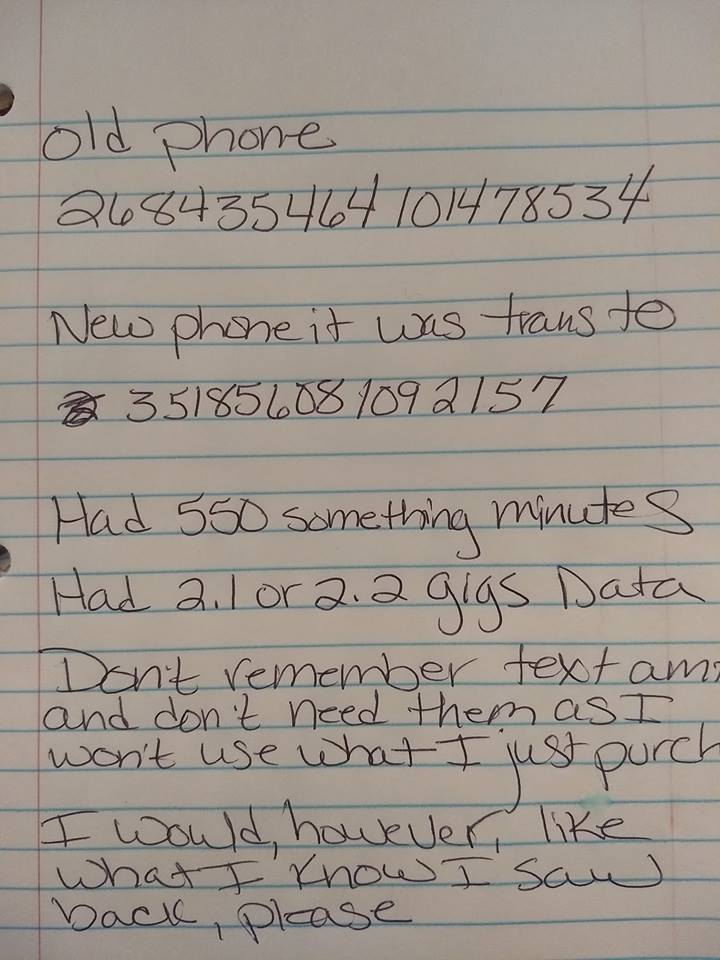 Old phone
268435464101478534
New phone it was trans to
351856081092157
Had 550 something minutes
Had 2.1 or 2.2 gigs Data
Don't remember text am
and don't need them as I
won't use what I just purch
I would, however, like
what I know I saw
back, please